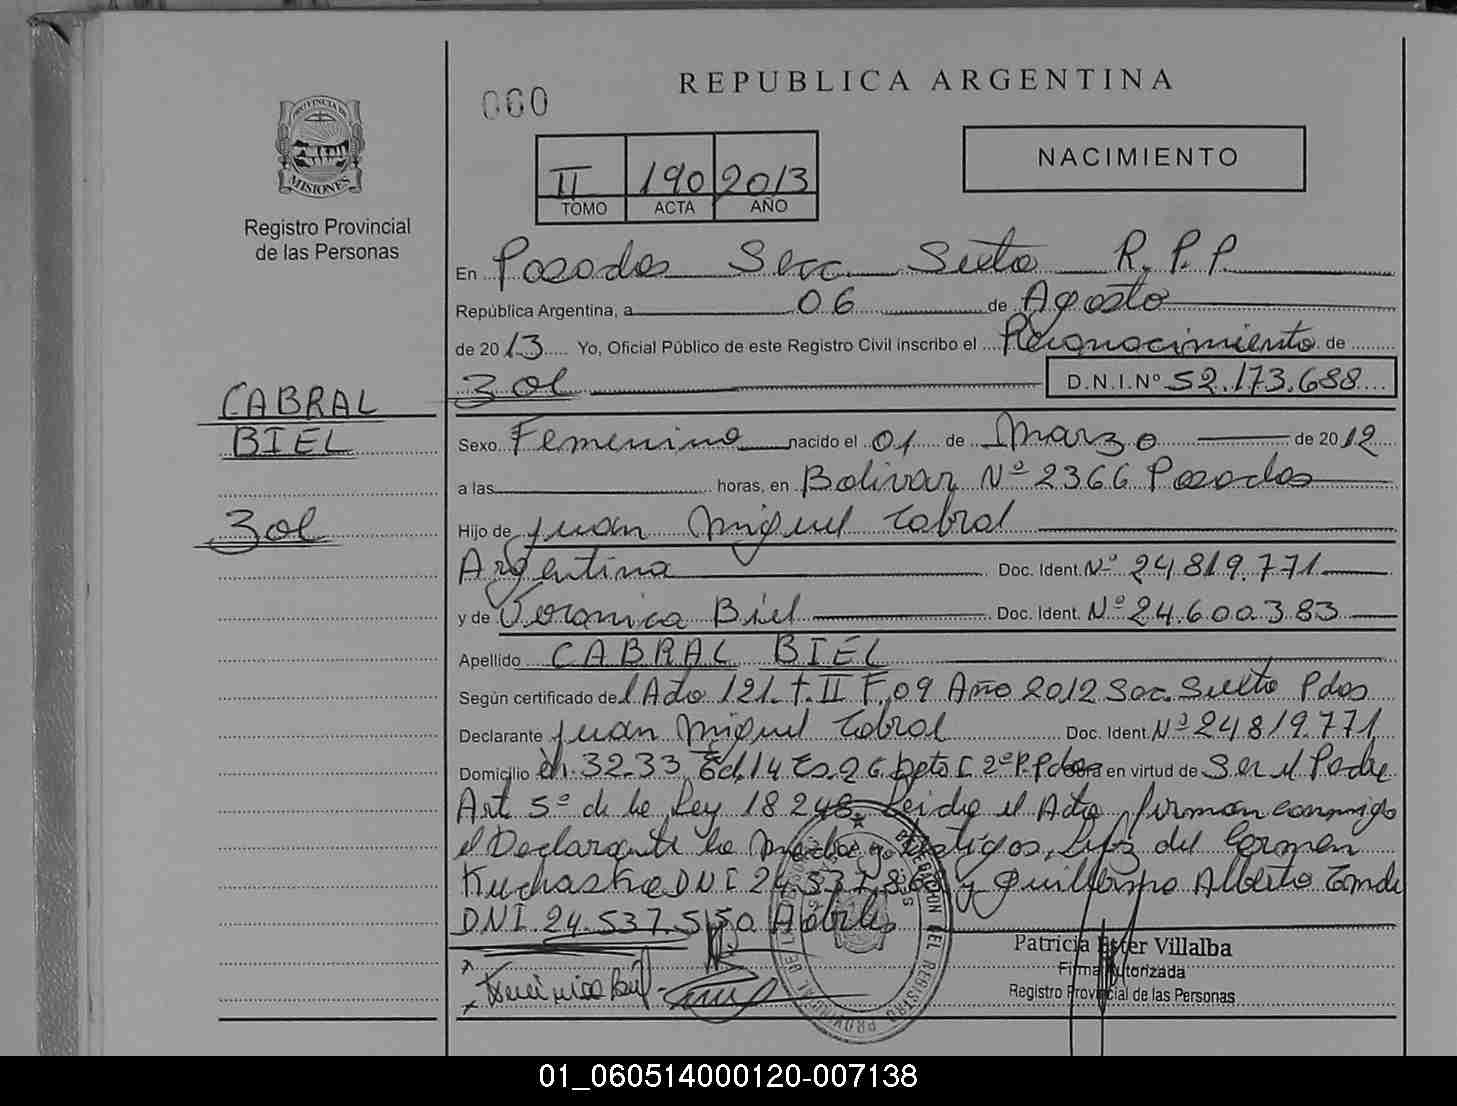 REPUBLICA ARGENTINA
000
PROVINCIA DE
MISIONES
Registro Provincial
de las Personas
II 190 2013
TOMO ACTA AÑO
NACIMIENTO
En Posadas Secc. Sexta R.P.P.
República Argentina, a 06 de Agosto
de 2013 Yo, Oficial Público de este Registro Civil inscribo el Reconocimiento de
Zol D.N.I.Nº 52.173.688
CABRAL
BIEL
Zol
Sexo Femenino nacido el 01 de Marzo de 2012
a las horas, en Bolivar Nº 2366 Posadas
Hijo de Juan Miguel Cabral
Argentina Doc. Ident. Nº 24.819.771
y de Veronica Biel Doc. Ident. Nº 24.600.383
Apellido CABRAL BIEL
Según certificado del Acta 121. T. II F. 09 Año 2012 Secc. Sexta Pdas
Declarante Juan Miguel Cabral Doc. Ident Nº 24.819.771
Domicilio Ch. 32.33 Ed. 14 Dpto C 2º P. Pdas en virtud de Ser el Padre
Art. 5º de la Ley 18248. Leida el Acta, firman conmigo
el Declarante la Madre y testigos, del Carmen
DNI y Guillermo Alberto
DNI 24.537.550 Habiles
Veronica Biel
DELEGACION DEL REGISTRO PROVINCIAL DE LAS PERSONAS
Patricia Ester Villalba
Firma Autorizada
Registro Provincial de las Personas
01_060514000120-007138